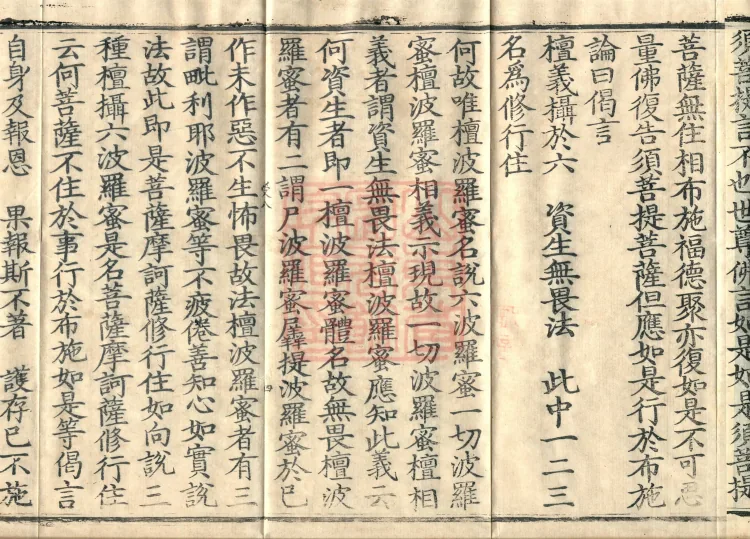 須菩提言不也世尊佛言如是如是須菩提
菩薩無住相布施福德聚亦復如是不可思
量佛復告須菩提菩薩但應如是行於布施
論曰偈言
檀義攝於六 資生無畏法 此中一二三
名為修行住
何故唯檀波羅蜜名說六波羅蜜一切波羅
蜜檀波羅蜜相義示現故一切波羅蜜檀相
義者謂資生無畏法檀波羅蜜應知此義云
何資生者即一檀波羅蜜體名故無畏檀波
羅蜜者有二謂尸波羅蜜羼提波羅蜜於已
作未作惡不生怖畏故法檀波羅蜜者有三
謂毗利耶波羅蜜等不疲倦善知心如實說
法故此即是菩薩摩訶薩修行住如向說三
種檀攝六波羅蜜是名菩薩摩訶薩修行住
云何菩薩不住於事行於布施如是等偈言
自身及報恩 果報斯不著 護存已不施